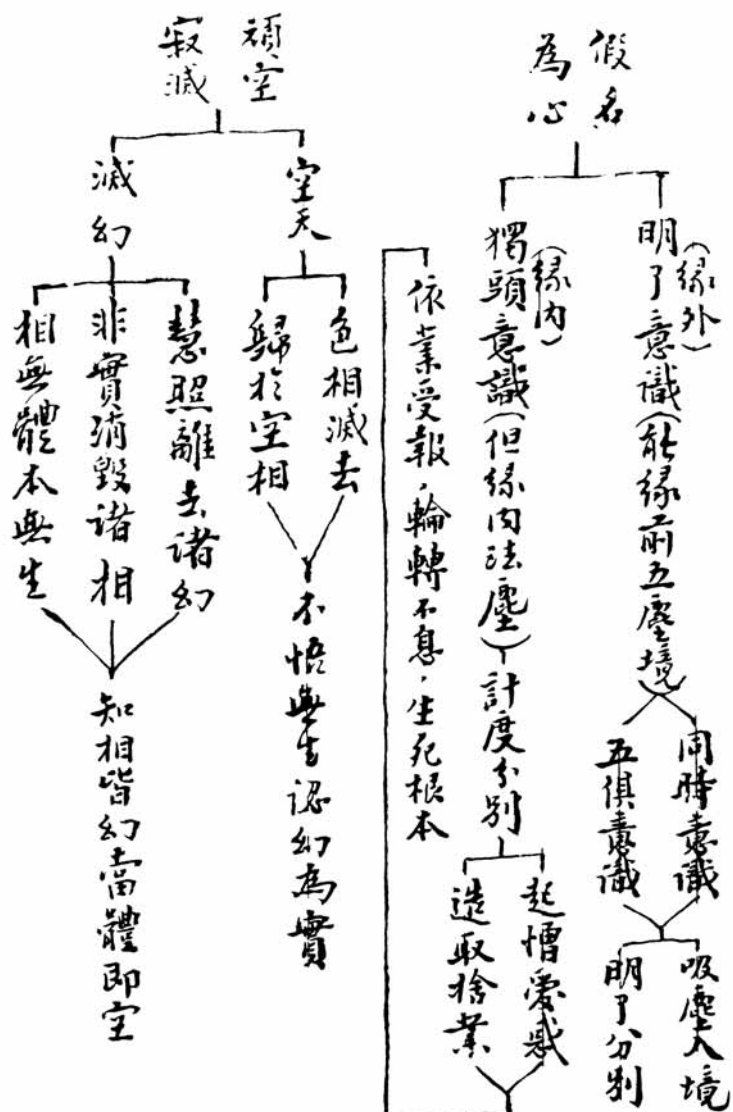 假名
為心
(緣外)
明了意識(能緣前五塵境)
同時意識
五俱意識
吸塵入境
明了分別
(緣內)
獨頭意識(但緣內法塵)計度分別
起憎愛惑
造取捨業
依業受報,輪轉不息,生死根本
頑空
寂滅
空天
色相滅去
歸於空相
不悟無生認幻為實
滅幻
慧照離去諸幻
非實消毀諸相
相無體本無生
知相皆幻當體即空